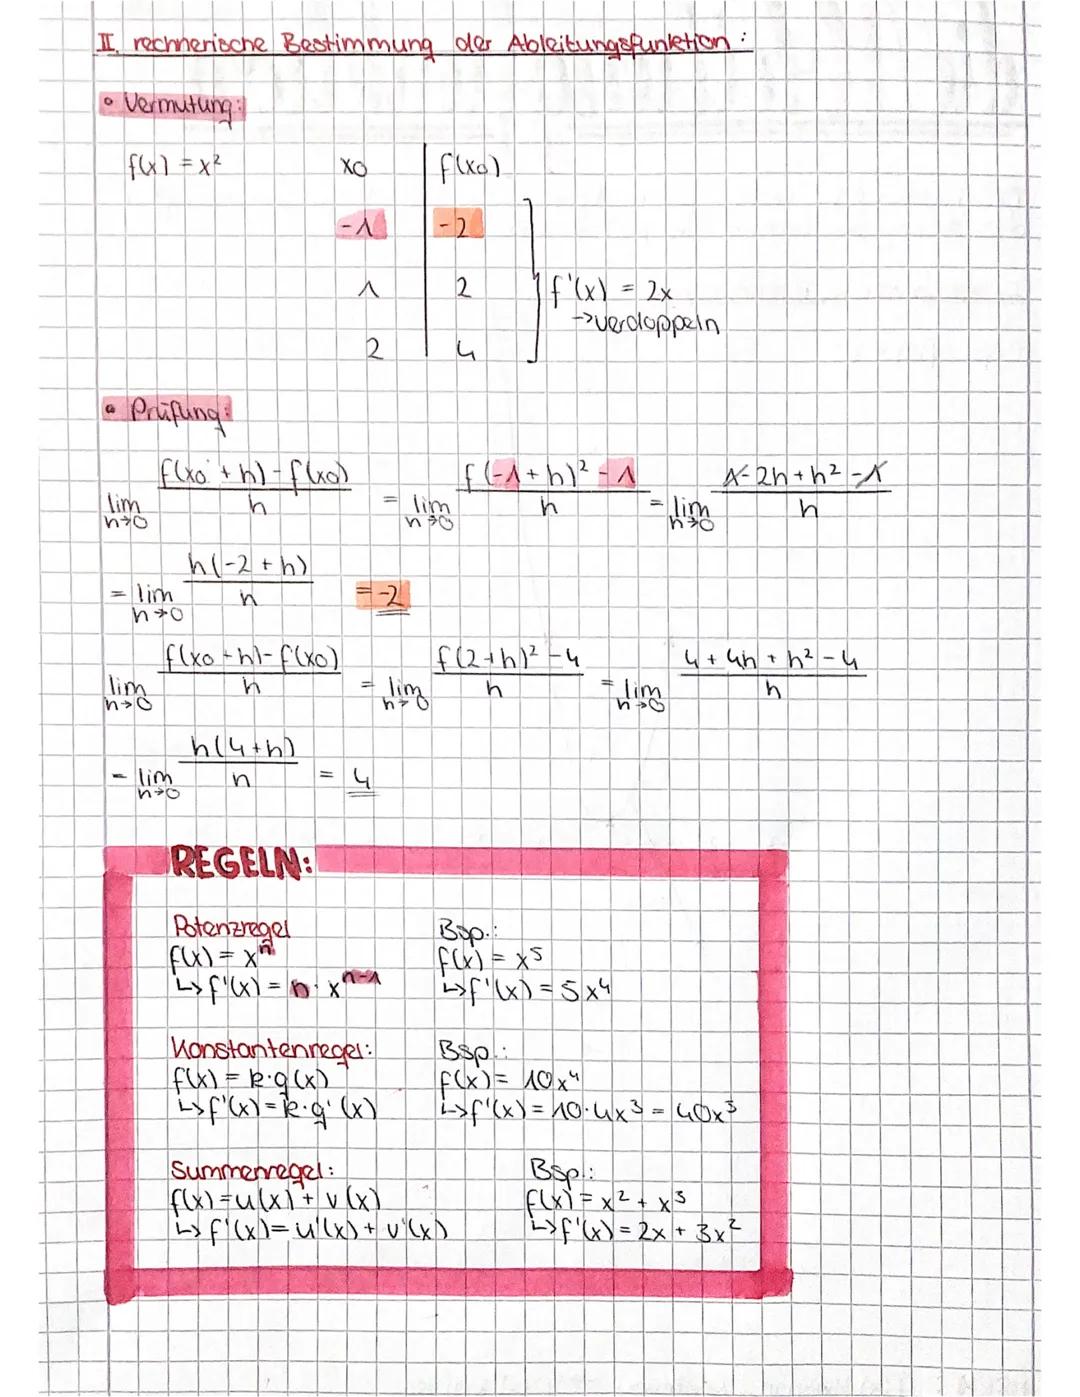 II. rechnerische Bestimmung der Ableitungsfunktion:
• Vermutung:
f(x) = x² x0 f(x0)
-1 -2
1 2 f'(x) = 2x
→verdoppeln
2 4
• Prüfung:
lim h→0 f(x0 + h) - f(x0) / h = lim h→0 f(-1 + h)² - 1 / h = lim h→0 1 - 2h + h² - 1 / h
= lim h→0 h(-2 + h) / h = -2
lim h→0 f(x0 + h) - f(x0) / h = lim h→0 f(2 + h)² - 4 / h = lim h→0 4 + 4h + h² - 4 / h
= lim h→0 h(4 + h) / h = 4
REGELN:
Potenzregel Bsp.:
f(x) = xⁿ f(x) = x⁵
↳ f'(x) = n · xⁿ⁻¹ ↳ f'(x) = 5x⁴
Konstantenregel: Bsp.:
f(x) = k·g(x) f(x) = 10x⁴
↳ f'(x) = k·g'(x) ↳ f'(x) = 10·4x³ = 40x³
Summenregel: Bsp.:
f(x) = u(x) + v(x) f(x) = x² + x³
↳ f'(x) = u'(x) + v'(x) ↳ f'(x) = 2x + 3x²